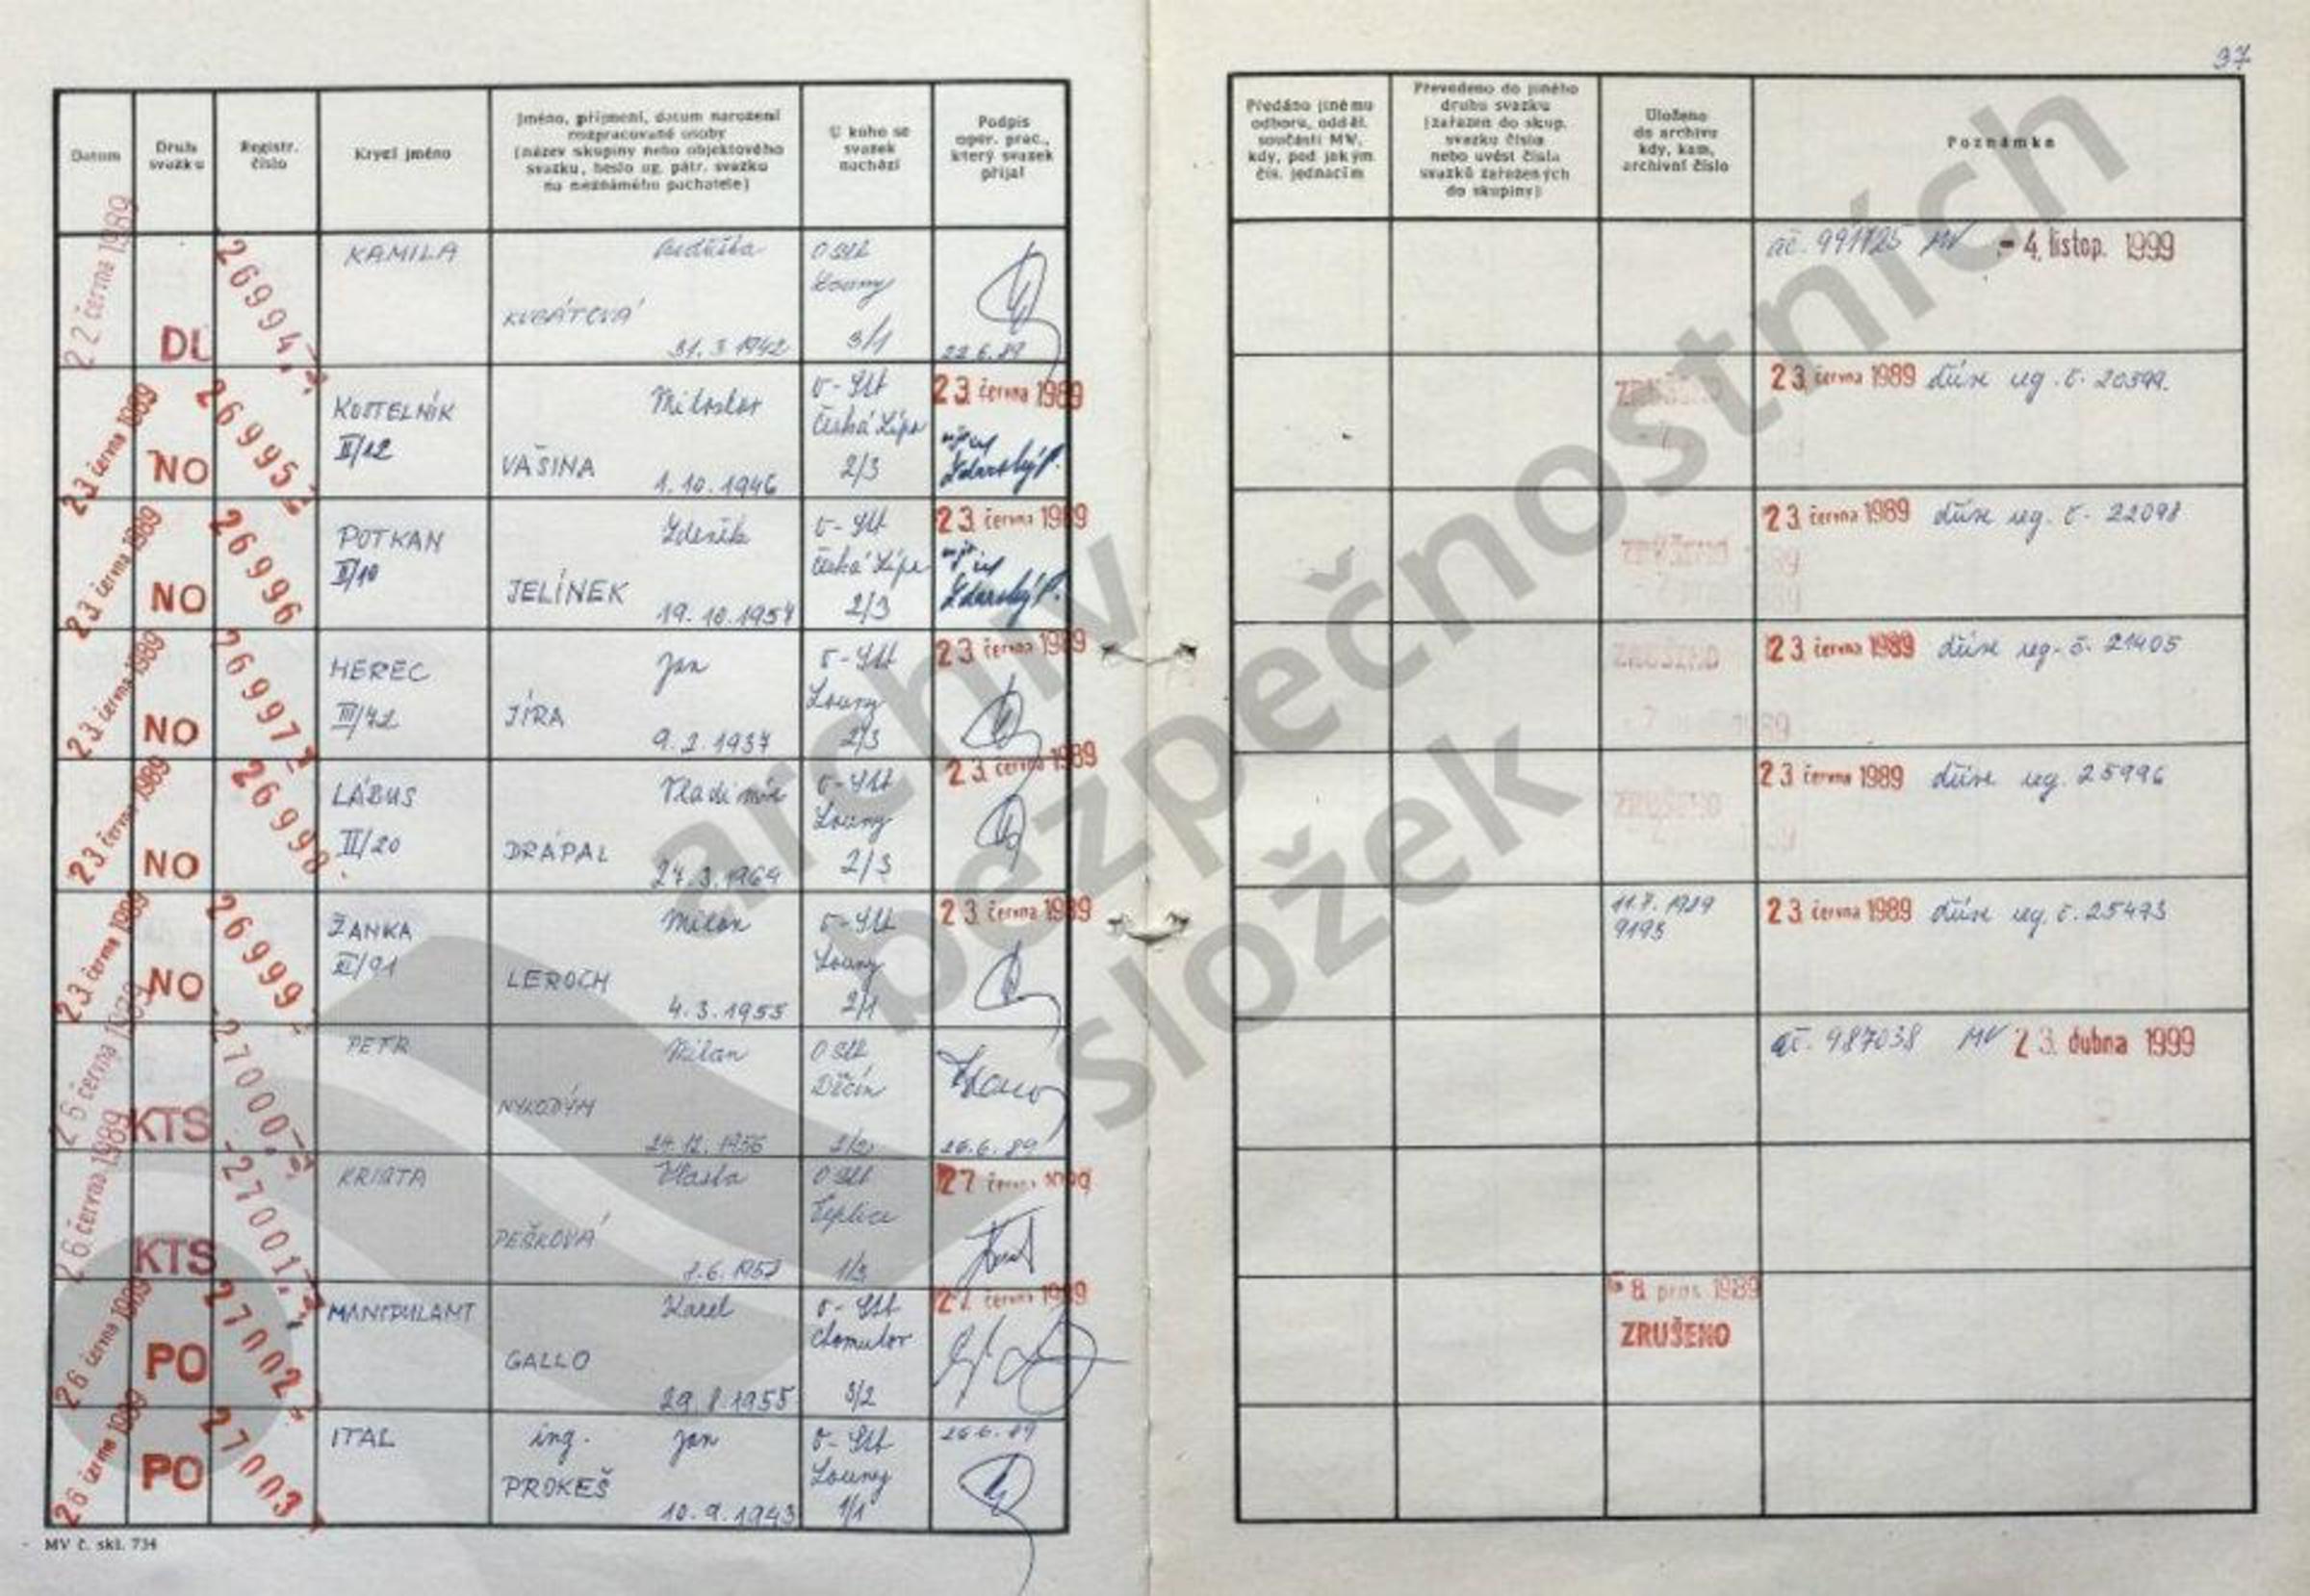 97
Datum
Druh
svazku
Registr.
číslo
Krycí jméno
Jméno, příjmení, datum narození
rozpracované osoby
(název skupiny nebo objektového
svazku, heslo ag. pátr. svazku
na neznámého pachatele)
U koho se
svazek
nachází
Podpis
oper. prac.,
který svazek
přijal
Předáno jinému
odboru, odděl.
součásti MV,
kdy, pod jakým
čís. jednacím
Převedeno do jiného
druhu svazku
(zařazen do skup.
svazku čísla
nebo uvést čísla
svazků zařazených
do skupiny)
Uloženo
do archivu
kdy, kam,
archivní číslo
Poznámka
22 června 1989
DL
KAMILA
KUBÁTOVÁ
31. 3 1942
Louny
3/1
22.6.89
ač. 991125 MV - 4. listop. 1999
23 června 1989
NO
26995
KOSTELNÍK
II/12
Miloslav
VAŠINA
1. 10. 1946
Česká Lípa
2/3
23 června 1989
Zdarský P.
ZRUŠENO
23 června 1989 dříve reg. č. 20399.
23 června 1989
NO
26996
POTKAN
II/10
Zdeněk
JELÍNEK
19. 10. 1957
Česká Lípa
2/3
23 června 1989
Zdarský P.
ZRUŠENO
23 června 1989 dříve reg. č. 22098
23 června 1989
NO
26997
HEREC
III/42
Jan
JÍRA
9. 2. 1937
Louny
2/3
23 června 1989
ZRUŠENO
23 června 1989 dříve reg. č. 21405
23 června 1989
NO
26998
LÁBUS
II/20
Vladimír
DRÁPAL
24. 3. 1969
Louny
2/3
23 června 1989
ZRUŠENO
23 června 1989 dříve reg. 25996
23 června 1989
NO
26999
ŽANKA
Milan
LEROCH
4. 3. 1955
Louny
2/1
23 června 1989
11.7. 1989
9193
23 června 1989 dříve reg. č. 25493
26 června 1989
KTS
27000
PETR
Milan
NYKODÝM
24. 12. 1956
Děčín
26.6.89
ač. 987038 MV 23. dubna 1999
26 června 1989
KTS
27001
KRISTA
Vlasta
PEŠKOVÁ
Teplice
1/3
27 června 1989
26 června 1989
PO
27002
MANIPULANT
Karel
GALLO
29. 8. 1955
Chomutov
3/2
27 června 1989
- 8. pros. 1989
ZRUŠENO
26 června 1989
PO
27003
ITAL
ing. Jan
PROKEŠ
10. 9. 1943
Louny
1/1
26.6.89
MV č. skl. 734
archiv
bezpečnostních
složek